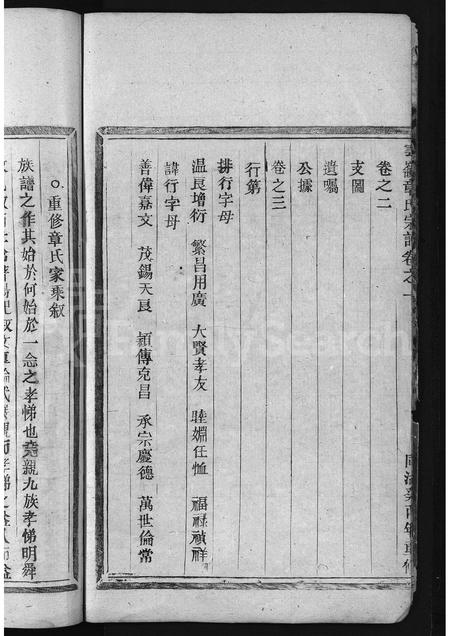 章氏宗譜卷之一
卷之二
支圖
遺囑
公據
卷之三
行第
排行字母
温良增衍 繁昌用廣 大賢孝友 睦婣任恤 福祿禎祥
諱行字母
善偉嘉文 茂錫天良 顯傳克昌 承宗慶德 萬世倫常
重修章氏家乘叙
族譜之作其始於何始於一念之孝悌也堯親九族孝悌明舜
FamilySearch